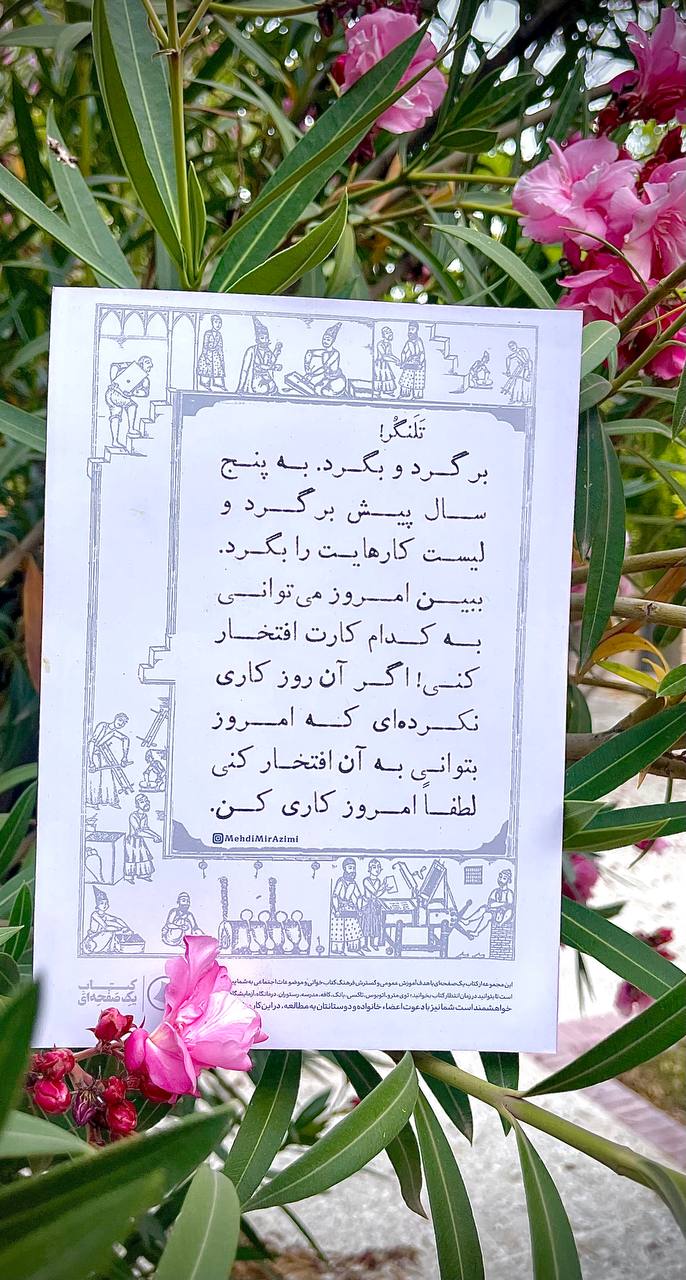 تَلَنگُر!
برگرد و بگرد. به پنج
سال پیش برگرد و
لیست کارهایت را بگرد.
ببین امروز می‌توانی
به کدام کارت افتخار
کنی! اگر آن روز کاری
نکرده‌ای که امروز
بتوانی به آن افتخار کنی
لطفاً امروز کاری کن.
MehdiMirAzimi
این مجموعه از کتاب یک‌صفحه‌ای با هدف آموزش عمومی و گسترش فرهنگ کتاب‌خوانی و موضوعات اجتماعی به شما
است تا بتوانید در زمان انتظار کتاب بخوانید؛ توی مترو، اتوبوس، تاکسی، بانک، کافه، مدرسه، رستوران، درمانگاه، آزمایشگاه
خواهشمند است شما نیز با دعوت اعضاء خانواده و دوستانتان به مطالعه، در این
کتاب
یک‌صفحه‌ای